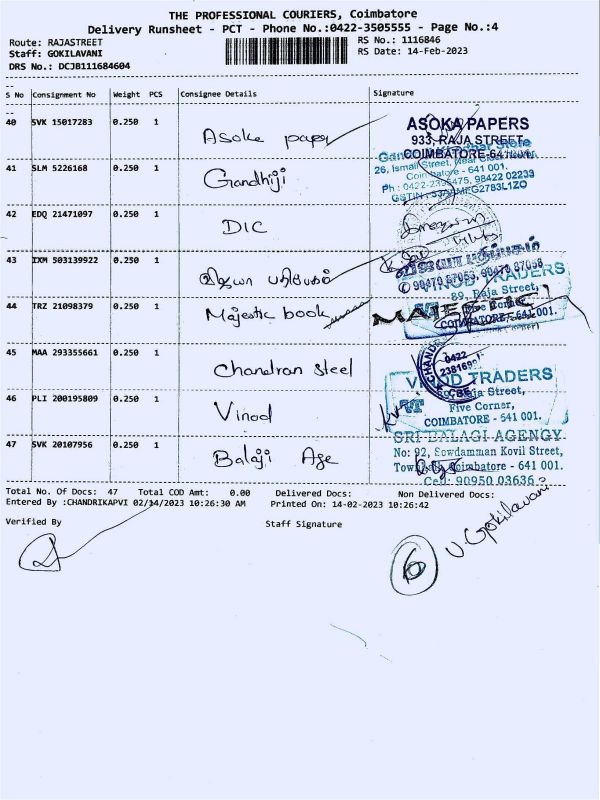 THE PROFESSIONAL COURIERS, Coimbatore
Delivery Runsheet - PCT - Phone No.:0422-3505555 - Page No.:4
Route: RAJASTREET
Staff: GOKILAVANI
DRS No.: DCJB111684604
RS No.: 1116846
RS Date: 14-Feb-2023
S No Consignment No Weight PCS Consignee Details Signature
40 SVK 15017283 0.250 1 Asoke paper
ASOKA PAPERS
933, RAJA STREET,
COIMBATORE-641 001.
41 SLM 5226168 0.250 1 Gandhiji
Store
26, Ismail Street, Near
Coimbatore - 641 001.
98422 02233
42 EDQ 21471097 0.250 1 DIC
43 IXM 503139922 0.250 1 விஜயா பதிப்பகம்
விஜயா பதிப்பகம்
44 TRZ 21098379 0.250 1 Majestic book
VINOD TRADERS
89, Raja Street,
Five Corner,
COIMBATORE - 641 001.
MAJESTIC
45 MAA 293355661 0.250 1 Chandran steel
CHANDRAN
0422
CBE
46 PLI 200195809 0.250 1 Vinod
VINOD TRADERS
VT
89, Raja Street,
Five Corner,
COIMBATORE - 641 001.
47 SVK 20107956 0.250 1 Balaji Age
SRI BALAGI AGENGY
No: 92, Sowdamman Kovil Street,
Coimbatore - 641 001.
Cell: 90950 03636
Total No. Of Docs: 47 Total COD Amt: 0.00 Delivered Docs: Non Delivered Docs:
Entered By :CHANDRIKAPVI 02/14/2023 10:26:30 AM Printed On: 14-02-2023 10:26:42
Verified By Staff Signature
6
V. Gokilavani